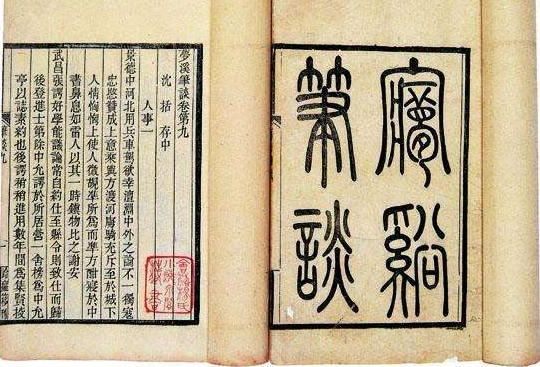 㝱谿
筆談
夢溪筆談卷第九
沈括存中
人事一
景德中河北用兵車駕欲幸澶淵中外之論不一獨寇
忠愍贊成上意乘輿方渡河虜騎充斥至於城下
人情恟恟上使人微覘準所為而準方酣寢於中
書鼻息如雷人以其一時鎮物比之謝安
武昌張諤好學能議論常自約仕至縣令則致仕而歸
後登進士第除中允諤於所居營一舍榜為中允
亭以誌素約也後諤稍稍進用數年間為集賢校